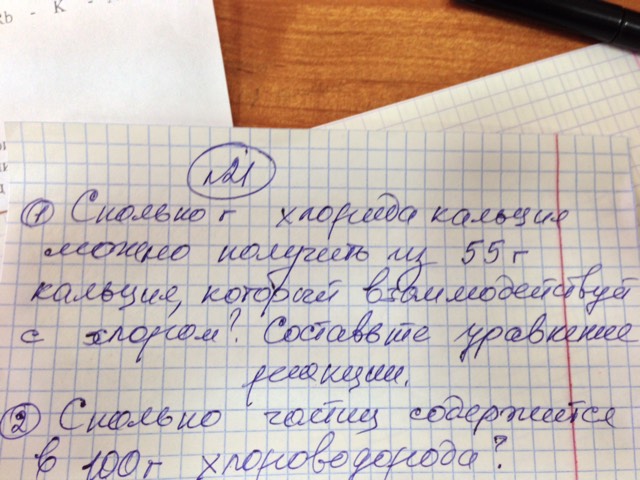 Rb - K -
№21
① Сколько г хлорида кальция
можно получить из 55 г
кальция, который взаимодействуе
с хлором? Составьте уравнение
реакции.
② Сколько частиц содержится
в 100 г хлороводорода?